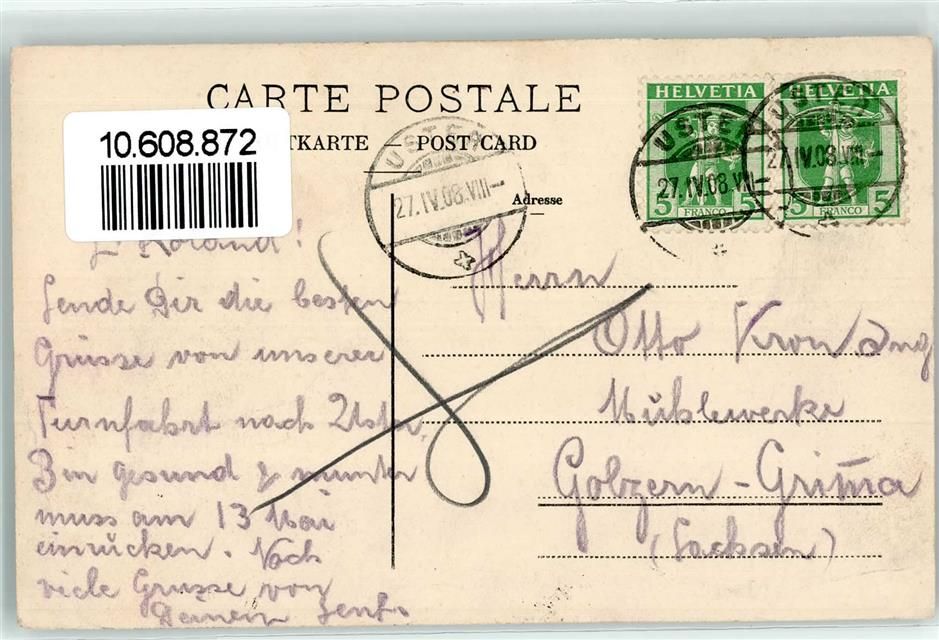 CARTE POSTALE
10.608.872
TKARTE — POST CARD
Adresse
USTER
27.IV.08.VIII
HELVETIA
HELVETIA
USTER
27.IV.08.VIII
USTER
27.IV.08.VIII
5 FRANCO 5
5 FRANCO 5
L. Roland!
Sende Dir die besten
Grüsse von unserer
Turnfahrt nach Uster.
Bin gesund & munter
muss am 13 Mai
einrücken. Noch
viele Grüsse von
Deinem
Herrn
Otto
Mühlewerke
Golzern-Grimma
(Sachsen)